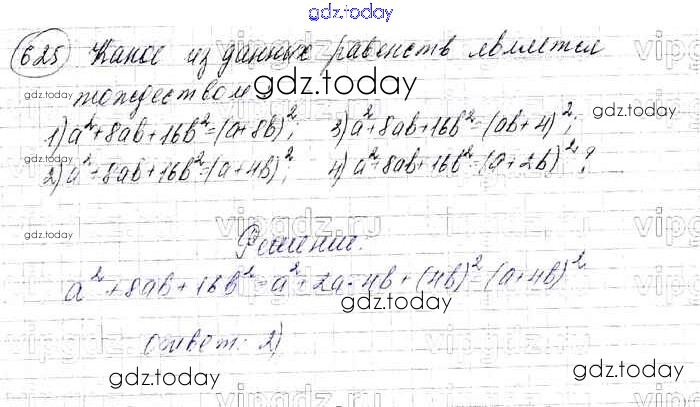 gdz.today
625 Какое из данных равенств является
gdz.today
тождеством
1) a²+8ab+16b²=(a+8b)²; 3) a²+8ab+16b²=(ab+4)²;
2) a²+8ab+16b²=(a+4b)²; 4) a²+8ab+16b²=(a+2b)²?
gdz.today
gdz.today
vipgdz.ru
Решение:
a²+8ab+16b²=a²+2a·4b+(4b)²=(a+4b)²
gdz.today
Ответ: 2)
gdz.today
gdz.today